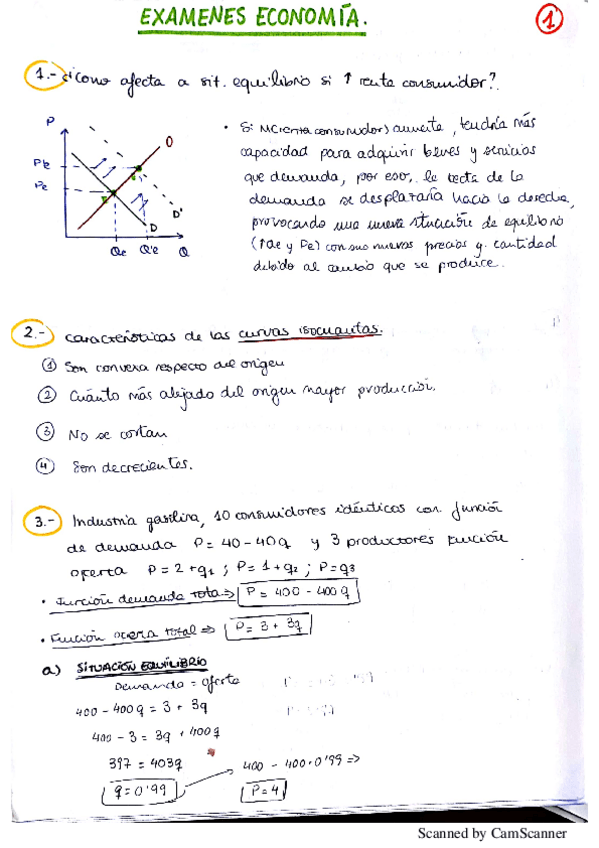 EXAMENES ECONOMÍA.
1
1.- ¿Cómo afecta a sit. equilibrio si ↑ renta consumidor?
P
O
P'e
Pe
D
D'
Qe Q'e Q
• Si M(renta consumidor) aumenta, tendría más
capacidad para adquirir bienes y servicios
que demanda, por eso, la recta de la
demanda se desplazaría hacia la derecha,
provocando una nueva situación de equilibrio
(↑Qe y Pe) con sus nuevos precios y cantidad
debido al cambio que se produce.
2.- Características de las curvas isocuantas.
1 Son convexa respecto del origen
2 Cuánto más alejado del origen mayor producción.
3 No se cortan
4 Son decrecientes.
3.- Industria gasolina, 10 consumidores idénticos con función
de demanda P = 40 - 40q y 3 productores función
oferta P = 2 + q1 ; P = 1 + q2 ; P = q3
• Función demanda total ⇒ P = 400 - 400q
• Función oferta total ⇒ P = 3 + 3q
a) SITUACIÓN EQUILIBRIO
Demanda = oferta
400 - 400q = 3 + 3q
400 - 3 = 3q + 400q
397 = 403q 400 - 400·0'99 ⇒
q = 0'99 P = 4
Scanned by CamScanner